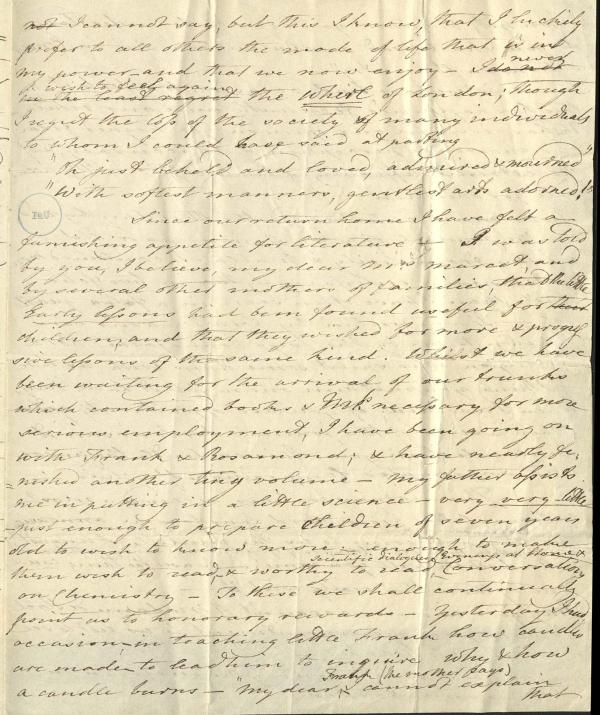 not I cannot say, but this I know, that I luckily
prefer to all others the mode of life that is in
my power – and that we now enjoy – I do not
never
wish to feel again
in the least regret the whirl of London; though
I regret the loss of the society of many individuals
to whom I could have said at parting
"Oh just beheld and loved, admired & mourned"
"With softest manners, gentlest arts adorned!"
Since our return home I have felt a
furnishing appetite for literature – I was told
by you, I believe, my dear Mrs Marcet, and
by several other mothers of families, that the little
Early lessons had been found useful for their
children, and that they wished for more & progres
sive lessons of the same kind. Whilst we have
been waiting for the arrival of our trunks
which contained books & MSS necessary for more
serious employment, I have been going on
with Frank & Rosamond; & have nearly fi-
=nished another tiny volume – my father assists
me in putting in a little science – very very little
just enough to prepare children of seven years
old to wish to know more – enough to make
Scientific dialogues, Evenings at Home &
them wish to read, & worthy to read, Conversations
on Chemistry – To these we shall continually
point as to honorary rewards – Yesterday I had
occasion in teaching little Frank how candles
are made to lead him to inquire why & how
Frank (the mother says)
a candle burns – "My dear, I cannot explain
that